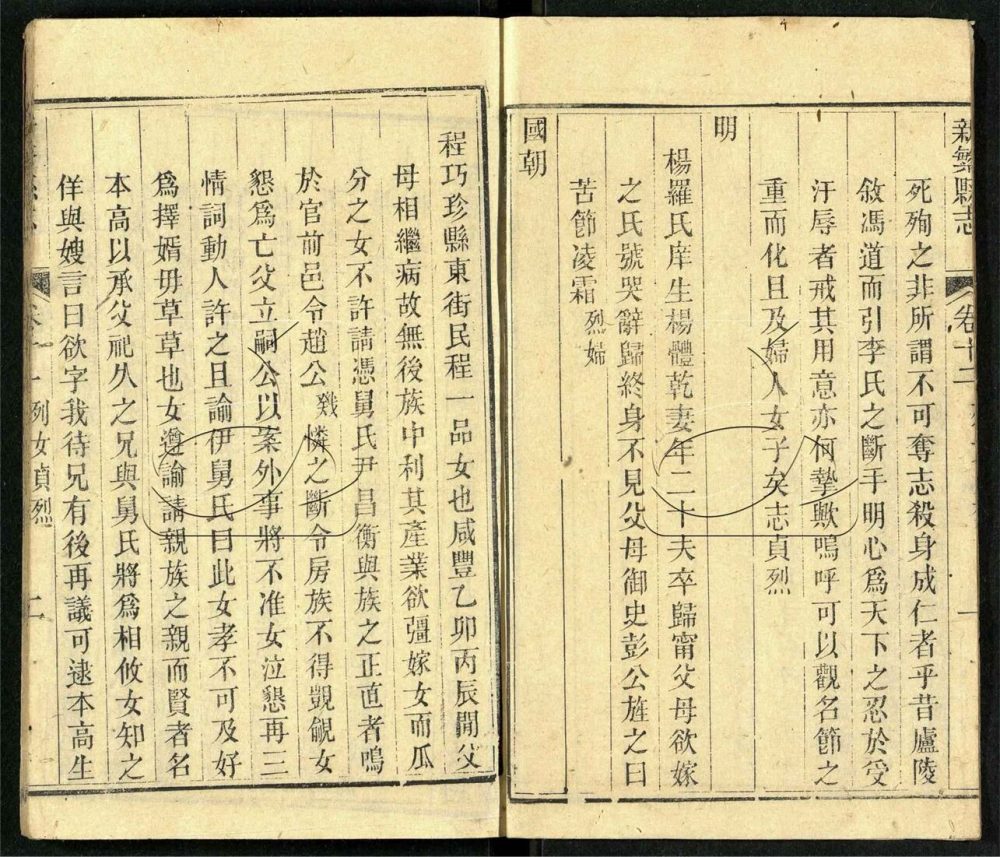 新繁縣志
卷十二
死殉之非所謂不可奪志殺身成仁者乎昔廬陵
敘馮道而引李氏之斷手明心爲天下之忍於受
汙辱者戒其用意亦何摯歟嗚呼可以觀名節之
重而化且及婦人女子矣志貞烈
明
楊羅氏庠生楊體乾妻年二十夫卒歸甯父母欲嫁
之氏號哭辭歸終身不見父母御史彭公旌之曰
苦節凌霜烈婦
國朝
程巧珍縣東街民程一品女也咸豐乙卯丙辰間父
母相繼病故無後族中利其產業欲彊嫁女而瓜
分之女不許請憑舅氏尹昌衡與族之正直者鳴
於官前邑令趙公憐之斷令房族不得覬覦女
懇爲亡父立嗣公以案外事將不准女泣懇再三
情詞動人許之且諭伊舅氏曰此女孝不可及好
爲擇婿毋草草也女遵諭請親族之親而賢者名
本高以承父祀久之兄與舅氏將爲相攸女知之
佯與嫂言曰欲字我待兄有後再議可逮本高生
列女貞烈
二